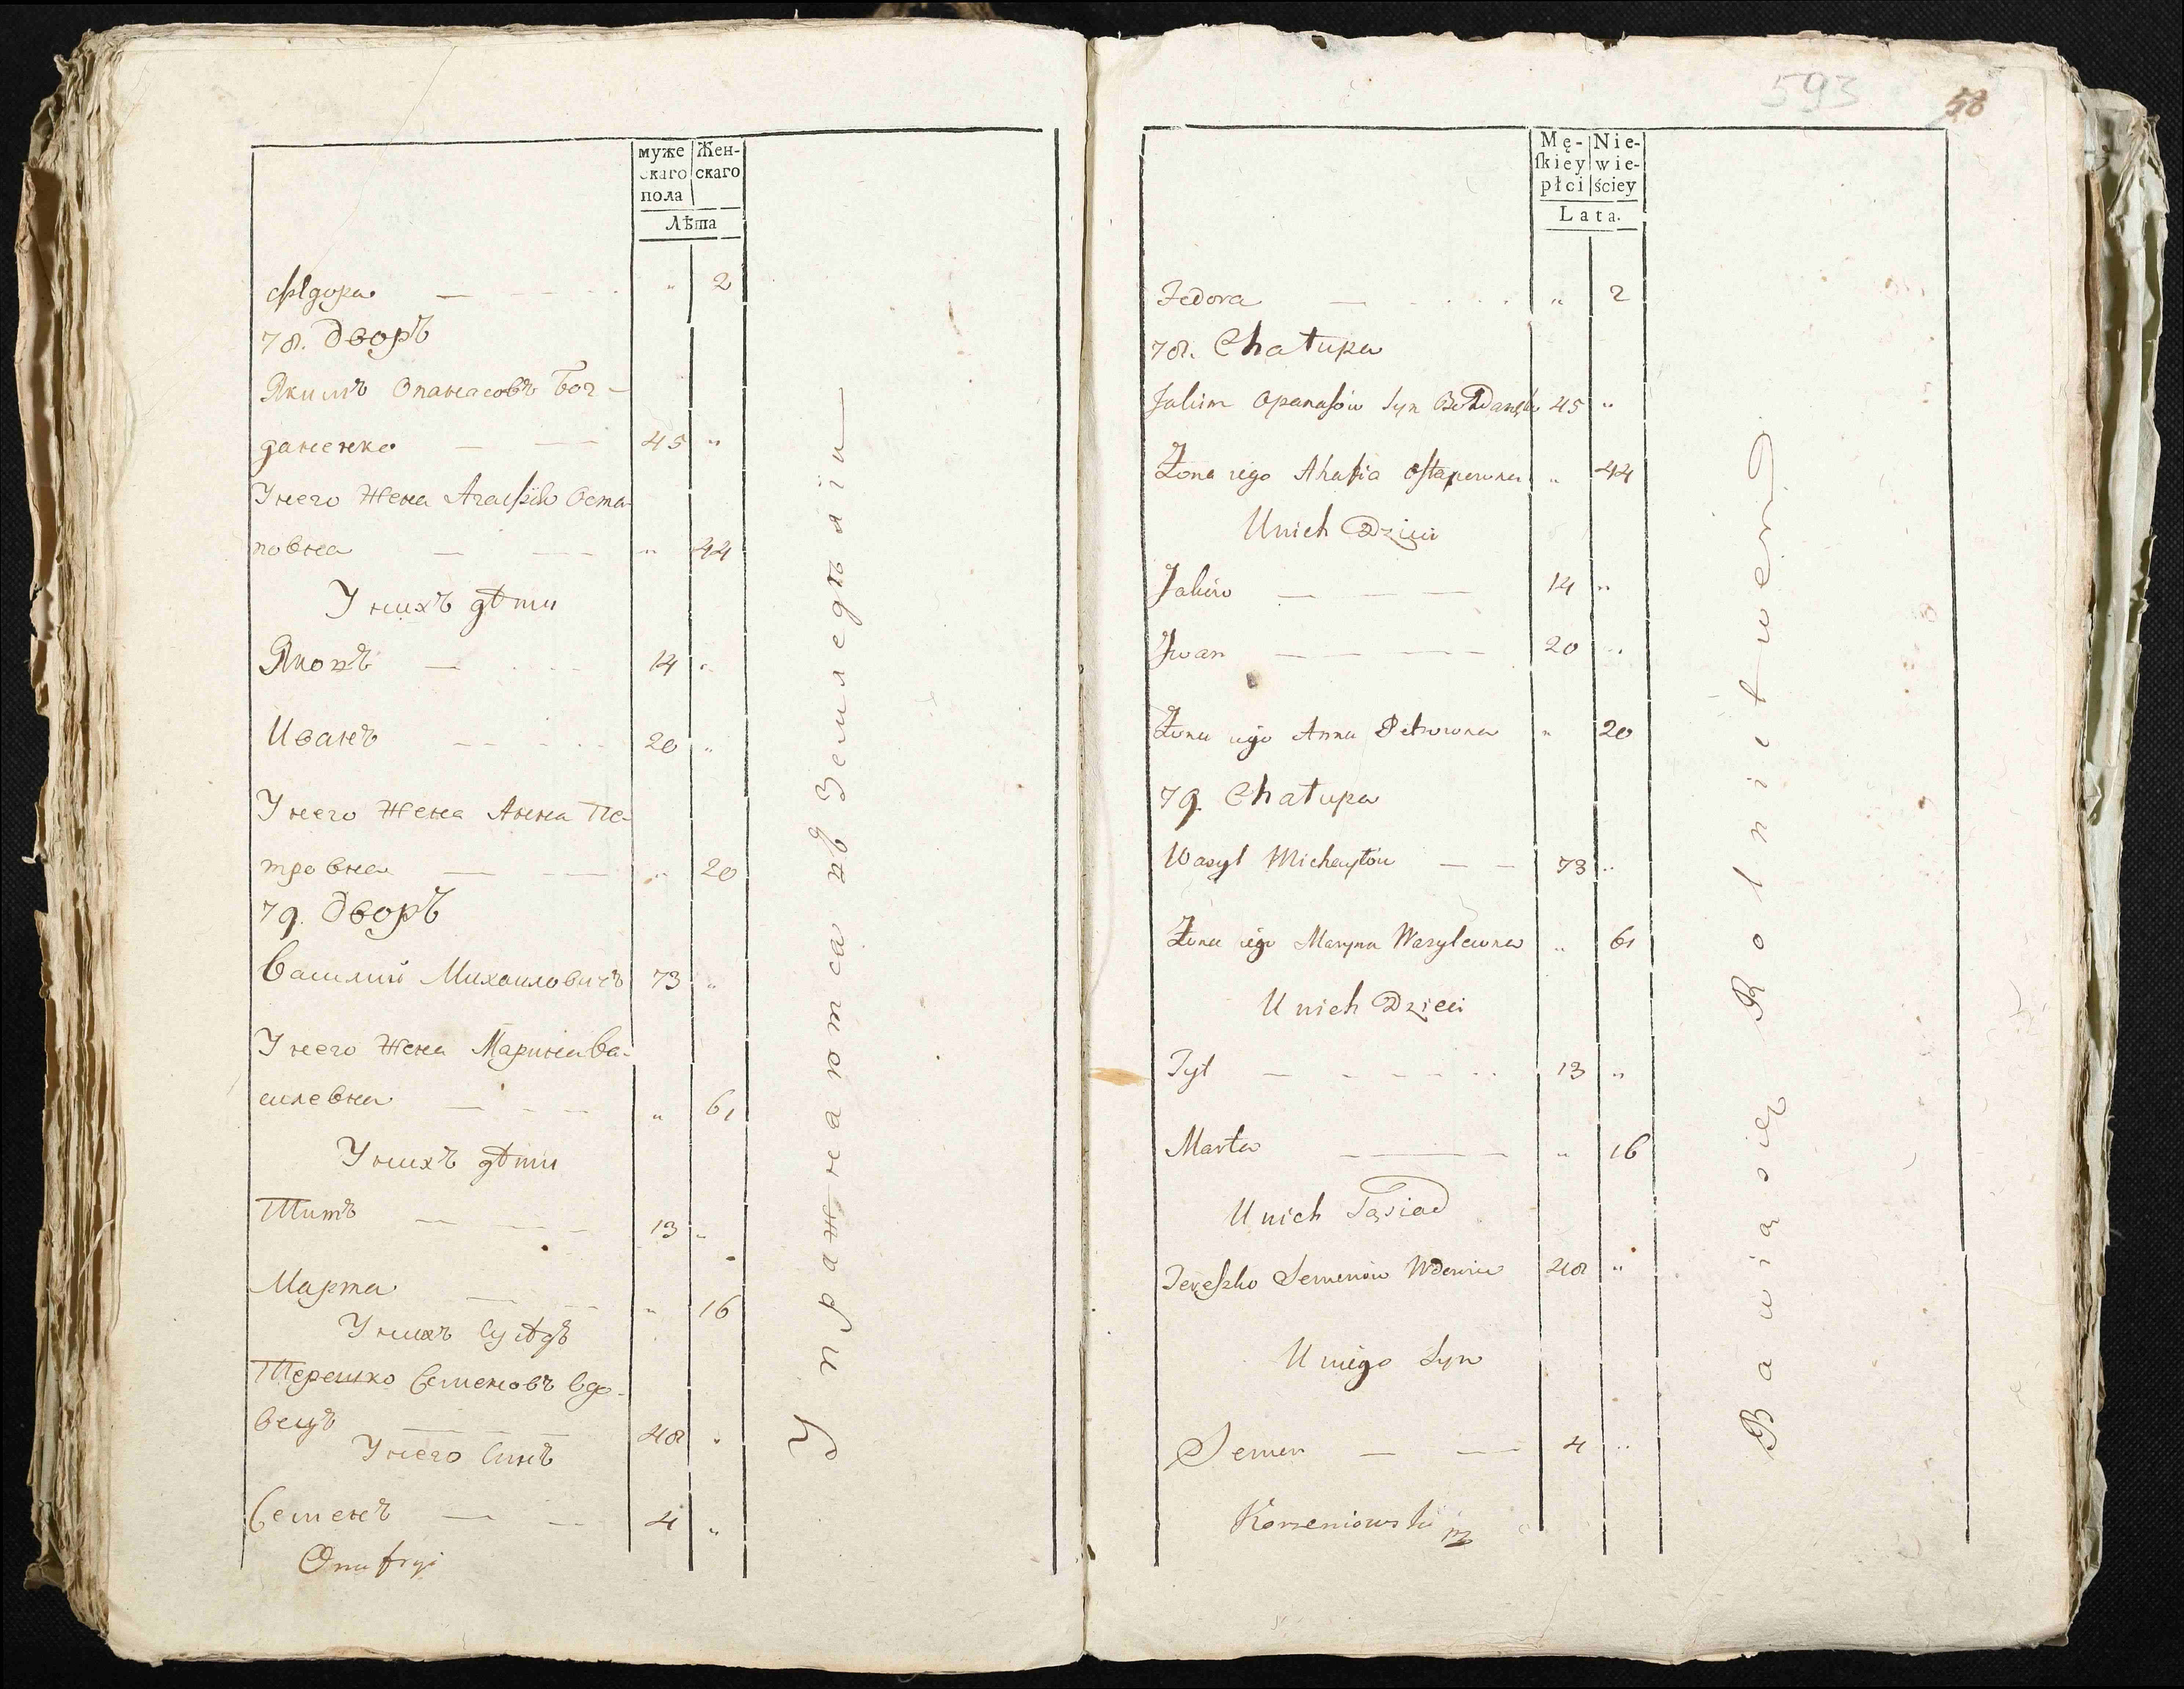 муже Жен-
скаго скаго
пола
Лѣта
Федора — — — „ 2
78. Дворъ
Якимъ Опанасовъ Бог-
даненко — — 45 „
У него Жена Агафія Оста-
повна — — „ 44
У нихъ дѣти
Яковъ — — 14 „
Иванъ — — 20 „
У него Жена Анна Пе-
тровна — — „ 20
79. Дворъ
Василий Михаиловичъ 73 „
У него Жена Марина Ва-
силевна — — „ 61
У нихъ дѣти
Титъ — — 13 „
Марта — — „ 16
У нихъ Сусѣдъ
Терешко Семеновъ вдо-
вецъ — — 48 „
У него Синъ
Семенъ — — 4 „
Onufryi
Упражнаются въ Земледѣлiи
593
58
Mę- Nie-
ſkiey wie-
płci ściey
Lata.
Fedora — — „ 2
78. Chałupa
Jakim Opanaſów Syn 45 „
Żona iego Ahafia Oſtapowna „ 44
U nich Dzieci
Jakiw — — — 14 „
Jwan — — — 20 „
Żona iego Anna Petrowna „ 20
79. Chałupa
Wasyl Michayłów — — 73 „
Żona iego Maryna Wasylewna „ 61
U nich Dzieci
Tyt — — — 13 „
Marta — — „ 16
U nich Sąsiad
Tereſzko Semenów Wdowiec 48 „
U niego Syn
Semen — — 4 „
Korzeniowski
Bawią się Rolnictwem